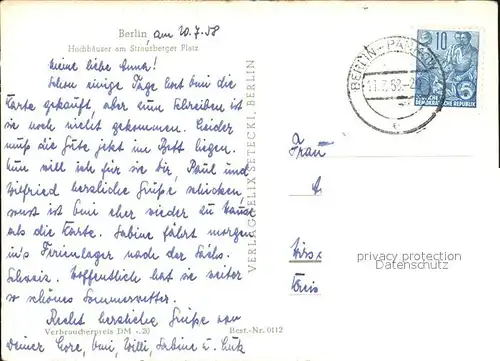 Berlin, am 20.7.58
Hochhäuser am Strausberger Platz
Meine liebe Anna!
Schon einige Tage hat Omi die
Karte gekauft, aber zum Schreiben ist
sie noch nicht gekommen. Leider
muß die Gute jetzt im Bett liegen.
Nun will ich für sie Dir, Paul und
Wilfried herzliche Grüße schicken,
sonst ist Omi eher wieder zu Hause
als die Karte. Sabine fährt morgen
in's Ferienlager nach der Sächs.
Schweiz. Hoffentlich hat sie weiter
so schönes Sommerwetter.
Recht herzliche Grüße von
Deiner Lore, Omi, Willi, Sabine u.
Verbraucherpreis DM -.20 Best.-Nr. 0112
VERLAG FELIX SETECKI, BERLIN
BERLIN-PANKOW
10
DEUTSCHE
DEMOKRATISCHE REPUBLIK
Frau
Kreis
privacy protection
Datenschutz